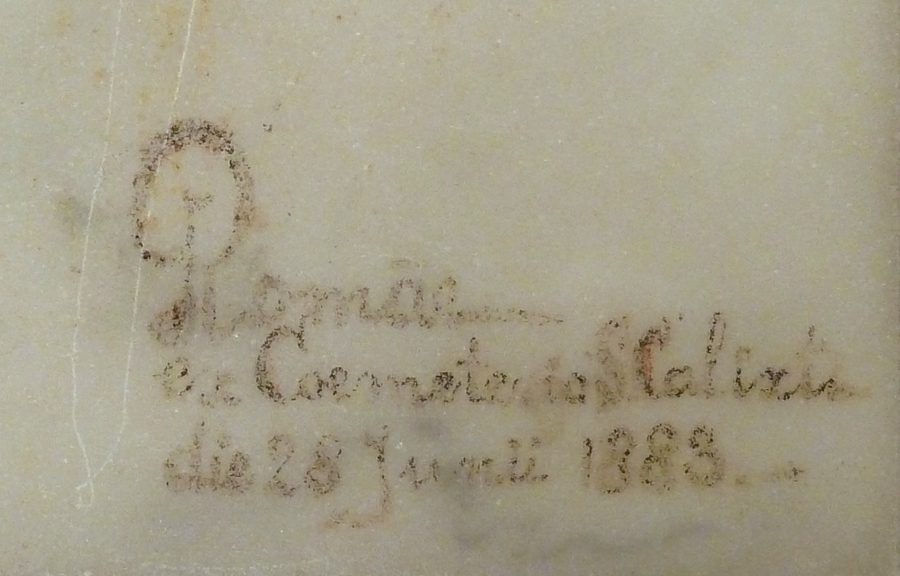 Romae
ex Coemeterio S Calixti
die 28 Junii 1883